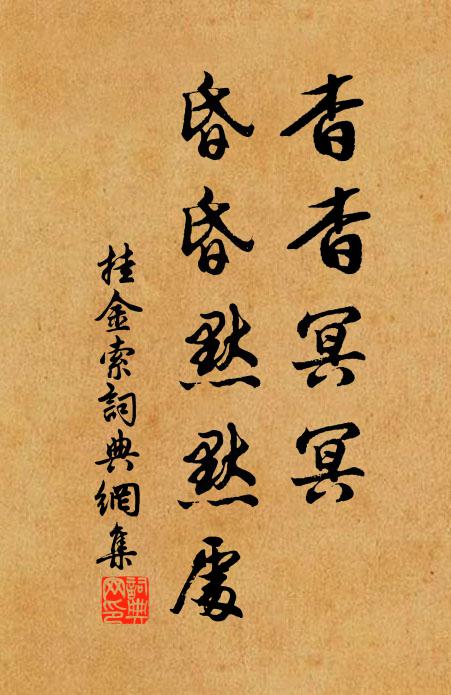 杳杳冥冥
昏昏默默處
挂金索詞典網集
詞典
网印